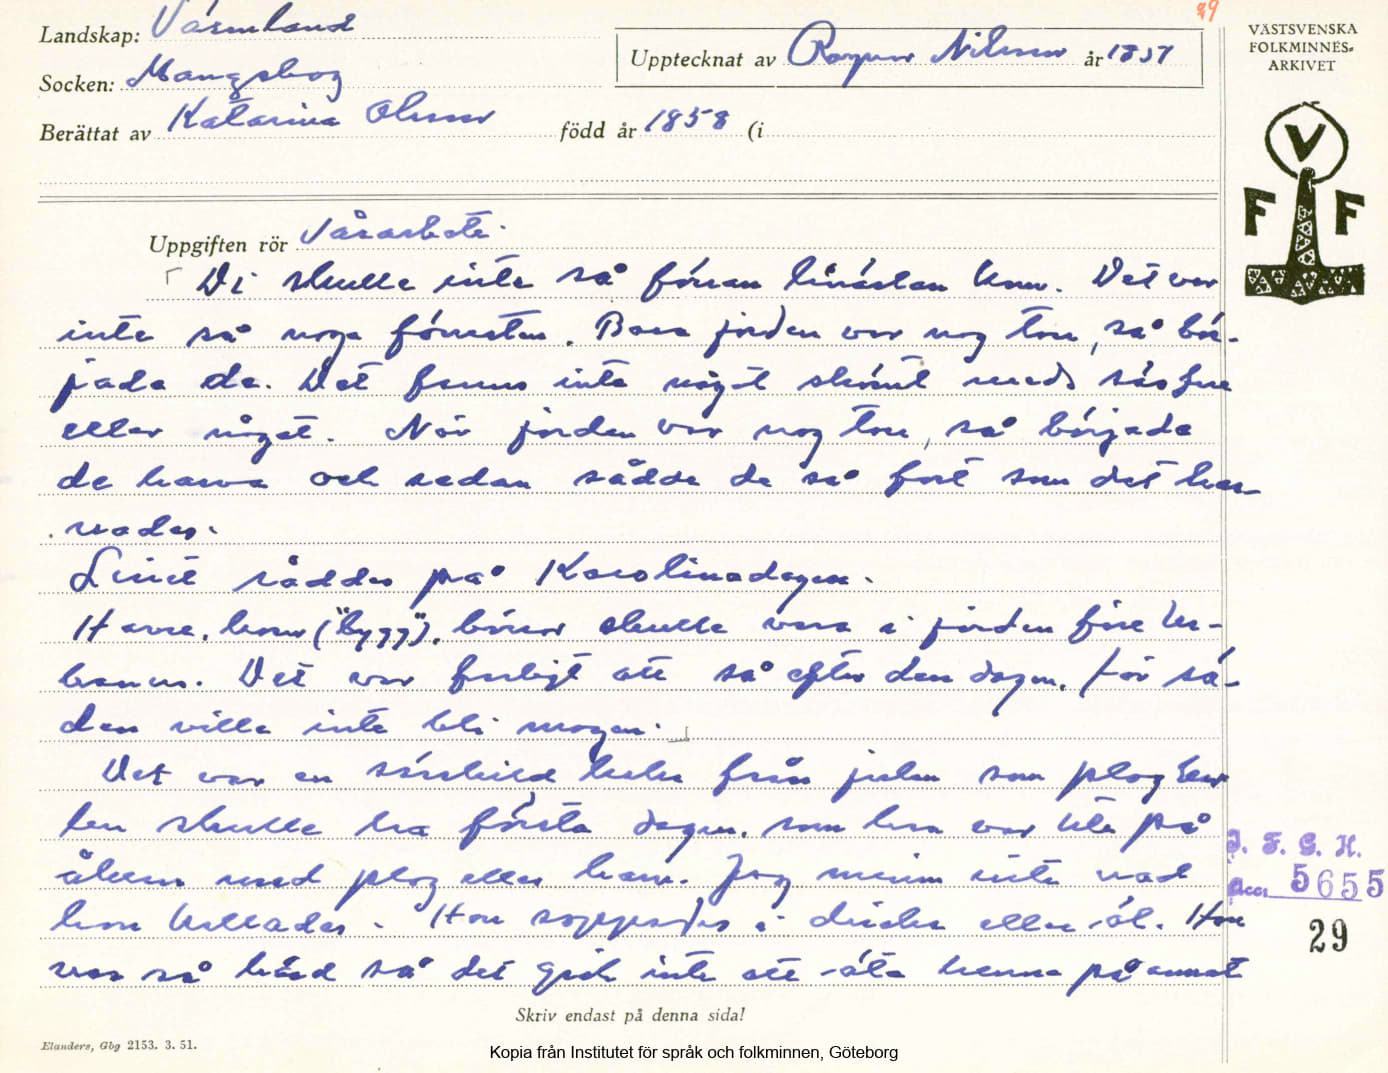 29
Landskap: Värmland
Upptecknat av Ragnar Nilsson år 1957
Socken: Mangskog
Berättat av Katarina Olsson född år 1858 (i
VÄSTSVENSKA
FOLKMINNES-
ARKIVET
V
F F
Uppgiften rör Vårarbete.
Di skulle inte så förran lövástan kom. Det var
inte så noga förresten. Bara jorden var nog torr, så bör-
jade de. Det fanns inte något skönt med
eller något. När jorden var nog torr, så började
de harva och sedan sådde de så fort som det har-
vades.
Linet såddes på Karolinadagen.
Havre, korn ("bygg"), bönor skulle vara i jorden före Ur-
banus. Det var farligt att så efter den dagen, för sä-
den ville inte bli mogen.
Det var en särskild kaka från julen som plog kar-
len skulle ha första dagen, som han var ute på
åkern med plog eller harv. Jag minns inte vad
hon kallades. Hon soppades i dricka eller öl. Hon
var så hård så det gick inte att äta henne på annat
J. F. G. H.
Acc. 5655
29
Skriv endast på denna sida!
Elanders, Gbg 2153. 3. 51.
Kopia från Institutet för språk och folkminnen, Göteborg